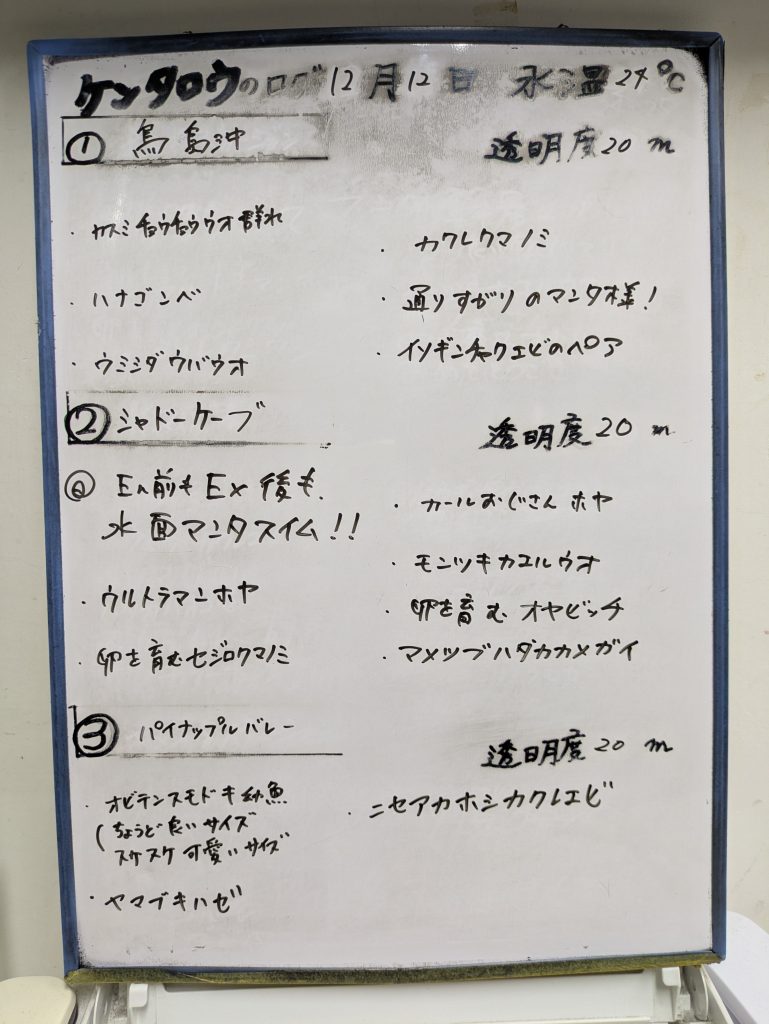 ケンタロウのログ 12月12日 水温 24℃
① 鳥島沖 透明度20m
・カスミチョウチョウウオ群れ
・ハナゴンベ
・ウミシダウバウオ
・カクレクマノミ
・通りすがりのマンタ様!
・イソギンチャクエビのペア
② シャドーケーブ 透明度20m
◎ En前もEx後も、
水面マンタスイム!!
・ウルトラマンホヤ
・卵を育むセジロクマノミ
・カールおじさんホヤ
・モンツキカエルウオ
・卵を育むオヤビッチャ
・マメツブハダカカメガイ
③ パイナップルバレー 透明度20m
・オビテンスモドキ幼魚
(ちょうど良いサイズ
スケスケ可愛いサイズ
・ヤマブキハゼ
・ニセアカホシカクレエビ